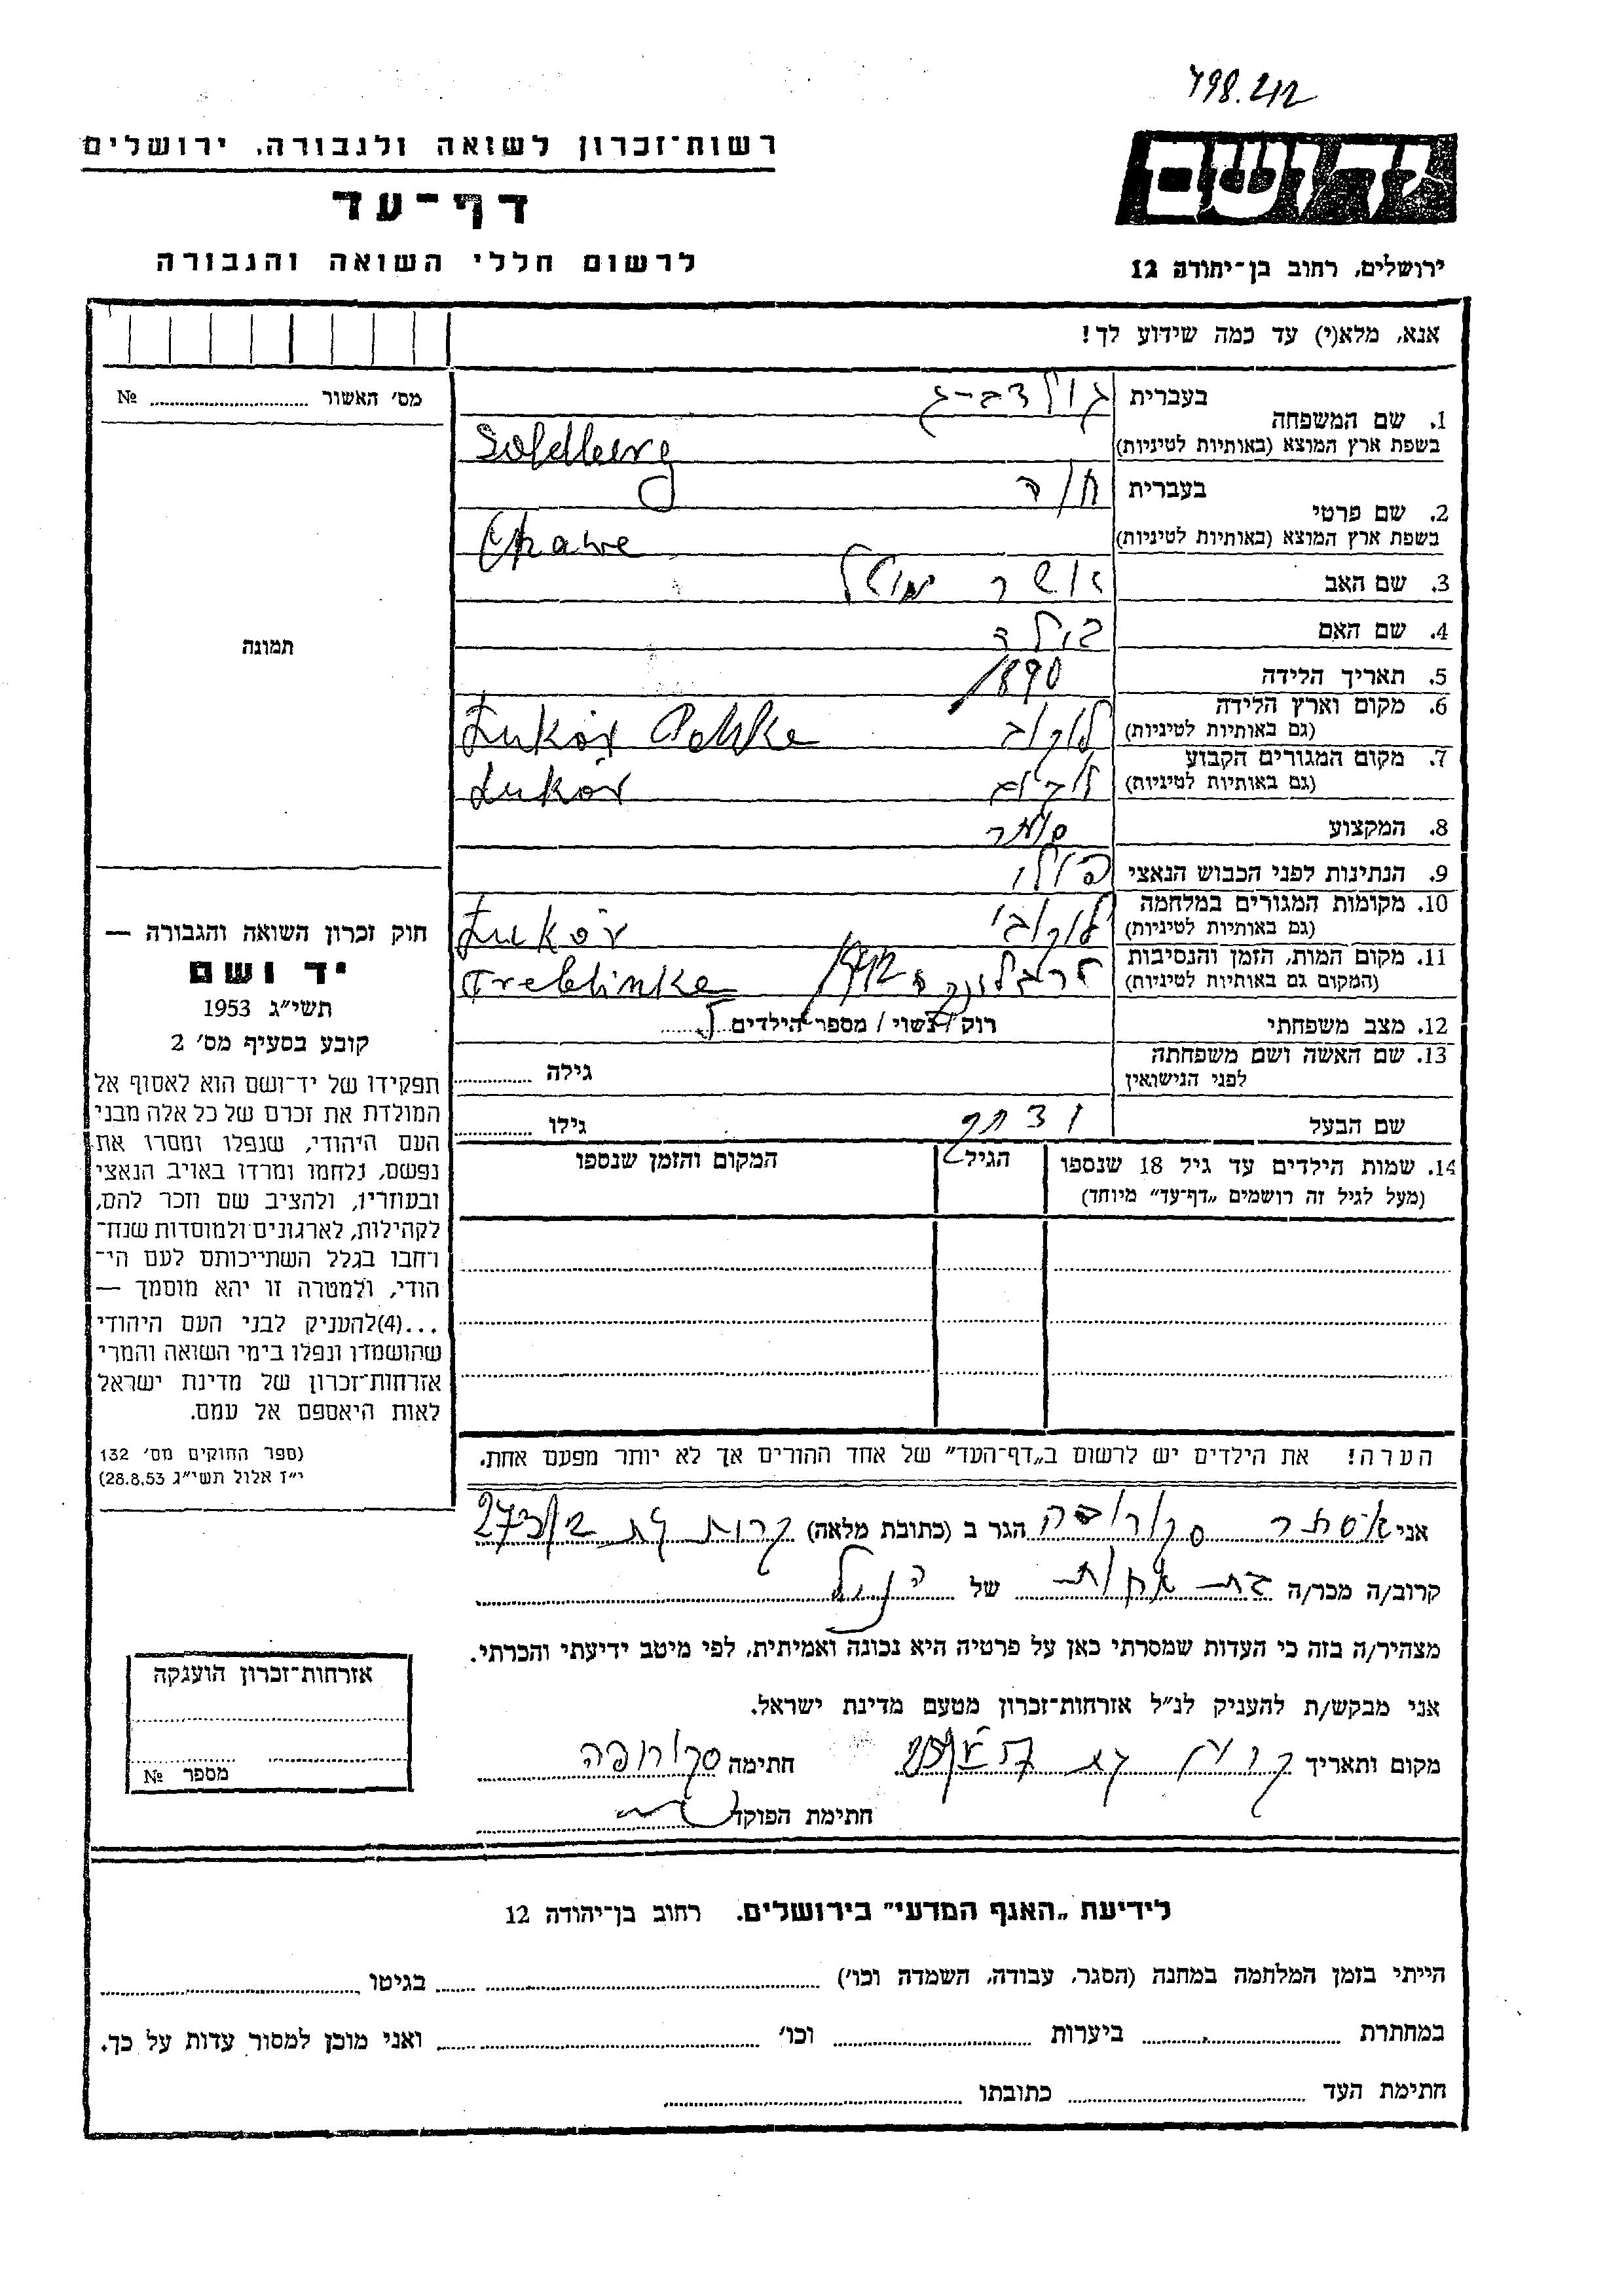 798.212
רשות־זכרון לשואה ולגבורה, ירושלים
דף־עד
לרשום חללי השואה והגבורה
יד ושם
ירושלים, רחוב בן־יהודה 12
אנא, מלא(י) עד כמה שידוע לך!
מס׳ האשור № ........
1. שם המשפחה
בעברית גולדברג
בשפת ארץ המוצא (באותיות לטיניות) Goldberg
2. שם פרטי
בעברית חוה
בשפת ארץ המוצא (באותיות לטיניות) Chawe
3. שם האב אשר
4. שם האם
5. תאריך הלידה 1890
6. מקום וארץ הלידה
(גם באותיות לטיניות) לוקוב Łukov Polska
7. מקום המגורים הקבוע
(גם באותיות לטיניות) לוקוב Łukov
8. המקצוע סוחר
9. הנתינות לפני הכבוש הנאצי פולני
10. מקומות המגורים במלחמה
(גם באותיות לטיניות) לוקוב Łukov
11. מקום המות, הזמן והנסיבות
(המקום גם באותיות לטיניות) טרבלינקה 1942 Treblinke
12. מצב משפחתי רוק / נשוי / מספר הילדים 5
13. שם האשה ושם משפחתה
לפני הנישואין גילה ........
שם הבעל גילו ........
14. שמות הילדים עד גיל 18 שנספו
(מעל לגיל זה רושמים „דף־עד״ מיוחד)
הגיל
המקום והזמן שנספו
הערה! את הילדים יש לרשום ב„דף־העד״ של אחד ההורים אך לא יותר מפעם אחת.
תמונה
חוק זכרון השואה והגבורה —
יד ושם
תשי״ג 1953
קובע בסעיף מס׳ 2
תפקידו של יד־ושם הוא לאסוף אל
המולדת את זכרם של כל אלה מבני
העם היהודי, שנפלו ומסרו את
נפשם, נלחמו ומרדו באויב הנאצי
ובעוזריו, ולהציב שם וזכר להם,
לקהילות, לארגונים ולמוסדות שנח־
רחבו בגלל השתייכותם לעם הי־
הודי, ולמטרה זו יהא מוסמך —
...(4)להעניק לבני העם היהודי
שהושמדו ונפלו בימי השואה והמרי
אזרחות־זכרון של מדינת ישראל
לאות היאספם אל עמם.
(ספר החוקים מס׳ 132
י״ז אלול תשי״ג 28.8.53)
אני אסתר הגר ב (כתובת מלאה) קרית גת 273/2
קרוב/ה מכר/ה בת אחות של הנ״ל
מצהיר/ה בזה כי העדות שמסרתי כאן על פרטיה היא נכונה ואמיתית, לפי מיטב ידיעתי והכרתי.
אני מבקש/ת להעניק לנ״ל אזרחות־זכרון מטעם מדינת ישראל.
מקום ותאריך קרית גת חתימה
חתימת הפוקד
אזרחות־זכרון הוענקה
מספר №
לידיעת „האגף המדעי״ בירושלים. רחוב בן־יהודה 12
הייתי בזמן המלחמה במחנה (הסגר, עבודה, השמדה וכו׳) ........ בגיטו ........
במחתרת ........ ביערות ........ וכו׳ ........ ואני מוכן למסור עדות על כך.
חתימת העד ........ כתובתו ........